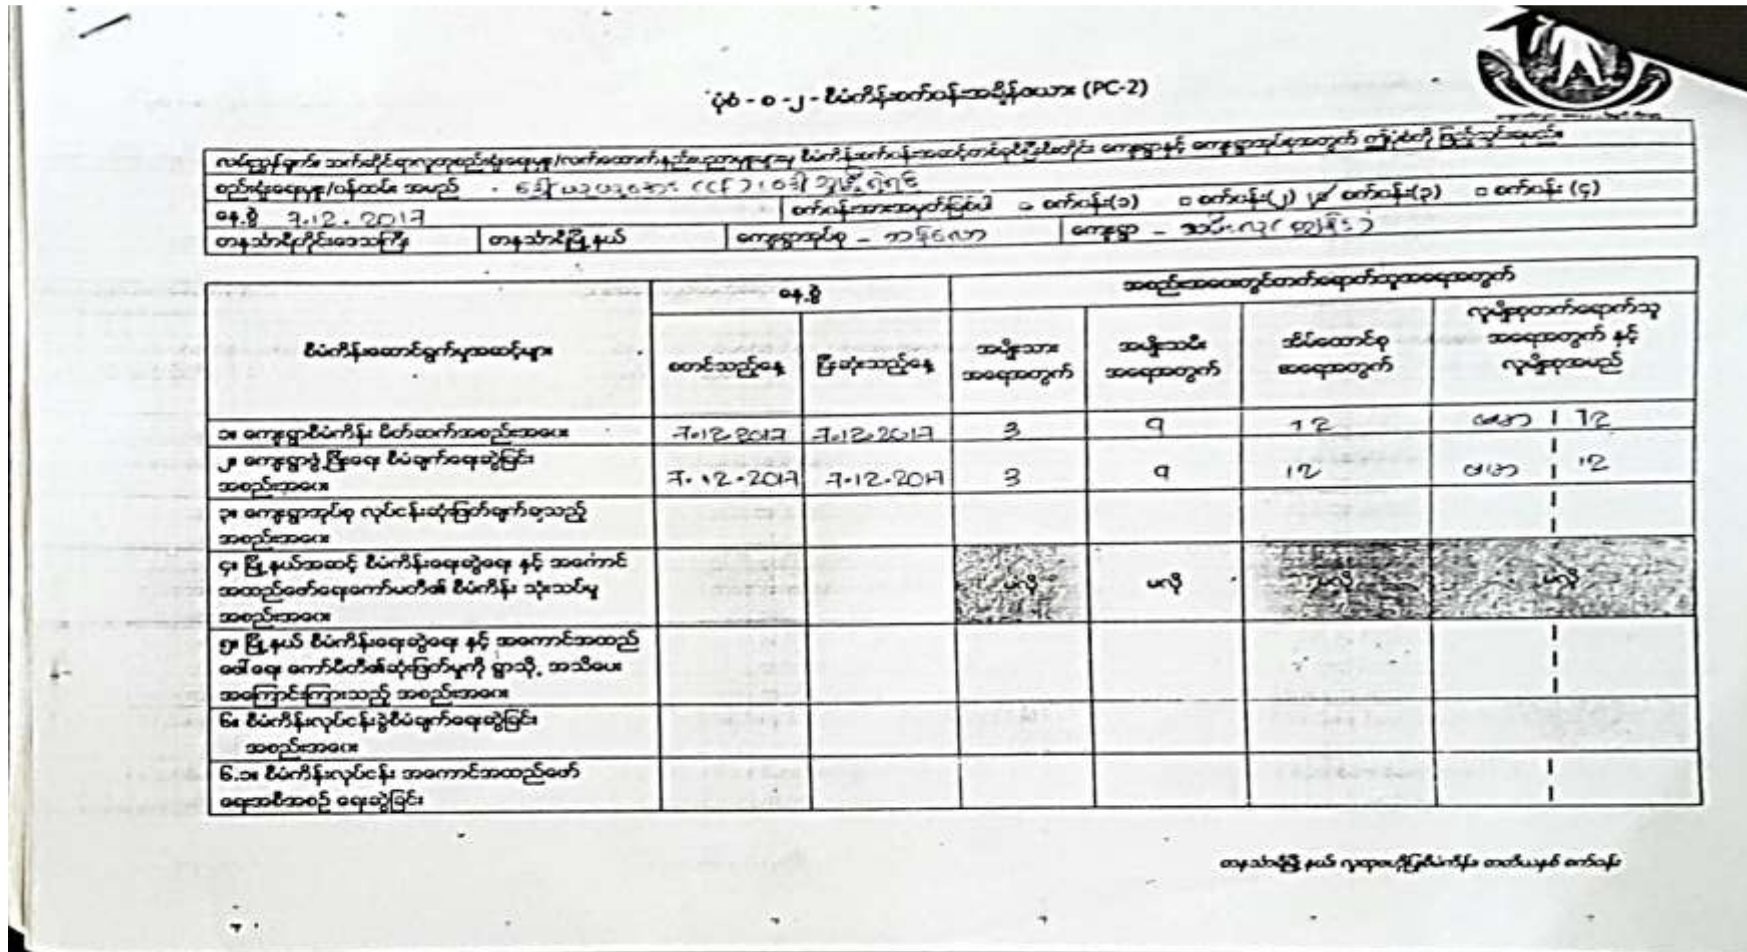 ပုံစံ - စ - ၂ - စီမံကိန်းစက်ဝန်းအချိန်ဇယား (PC-2)
လမ်းညွှန်ချက်။ သက်ဆိုင်ရာလူထုစည်းရုံးရေးမှူး/လက်ထောက်နည်းပညာမှူးများမှ စီမံကိန်းစက်ဝန်းအဆင့်တစ်ခုစီပြီးစီးတိုင်း ကျေးရွာနှင့် ကျေးရွာအုပ်စုအတွက် ဤပုံစံကို ဖြည့်သွင်းရမည်။
စည်းရုံးရေးမှူး/ဝန်ထမ်း အမည် - ဒေါ် (CF) ၊ ဒေါ်
နေ့စွဲ 7.12.2017 စက်ဝန်းအားအမှတ်ခြစ်ပါ □ စက်ဝန်း(၁) □ စက်ဝန်း(၂) ☑ စက်ဝန်း(၃) □ စက်ဝန်း (၄)
တနင်္သာရီတိုင်းဒေသကြီး တနင်္သာရီမြို့နယ် ကျေးရွာအုပ်စု - ကျေးရွာ -
နေ့စွဲ အစည်းအဝေးတွင်တက်ရောက်သူအရေအတွက်
စီမံကိန်းဆောင်ရွက်မှုအဆင့်များ စတင်သည့်နေ့ ပြီးဆုံးသည့်နေ့ အမျိုးသား အရေအတွက် အမျိုးသမီး အရေအတွက် အိမ်ထောင်စု အရေအတွက် လူမျိုးစုတက်ရောက်သူ အရေအတွက် နှင့် လူမျိုးစုအမည်
၁။ ကျေးရွာစီမံကိန်း မိတ်ဆက်အစည်းအဝေး 7.12.2017 7.12.2017 3 9 12 ဗမာ 12
၂။ ကျေးရွာဖွံ့ဖြိုးရေး စီမံချက်ရေးဆွဲခြင်း
အစည်းအဝေး 7.12.2017 7.12.2017 3 9 12 ဗမာ 12
၃။ ကျေးရွာအုပ်စု လုပ်ငန်းဆုံးဖြတ်ချက်ချသည့်
အစည်းအဝေး
၄။ မြို့နယ်အဆင့် စီမံကိန်းရေးဆွဲရေး နှင့် အကောင်
အထည်ဖော်ရေးကော်မတီ၏ စီမံကိန်း သုံးသပ်မှု မလို မလို မလို မလို
အစည်းအဝေး
၅။ မြို့နယ် စီမံကိန်းရေးဆွဲရေး နှင့် အကောင်အထည်
ဖေါ်ရေး ကော်မိတီ၏ဆုံးဖြတ်မှုကို ရွာသို့ အသိပေး
အကြောင်းကြားသည့် အစည်းအဝေး
၆။ စီမံကိန်းလုပ်ငန်းခွဲစီမံချက်ရေးဆွဲခြင်း
အစည်းအဝေး
၆.၁။ စီမံကိန်းလုပ်ငန်း အကောင်အထည်ဖော်
ရေးအစီအစဉ် ရေးဆွဲခြင်း
တနင်္သာရီမြို့နယ် လူထုဗဟိုပြုစီမံကိန်း တတိယနှစ် စက်ဝန်း